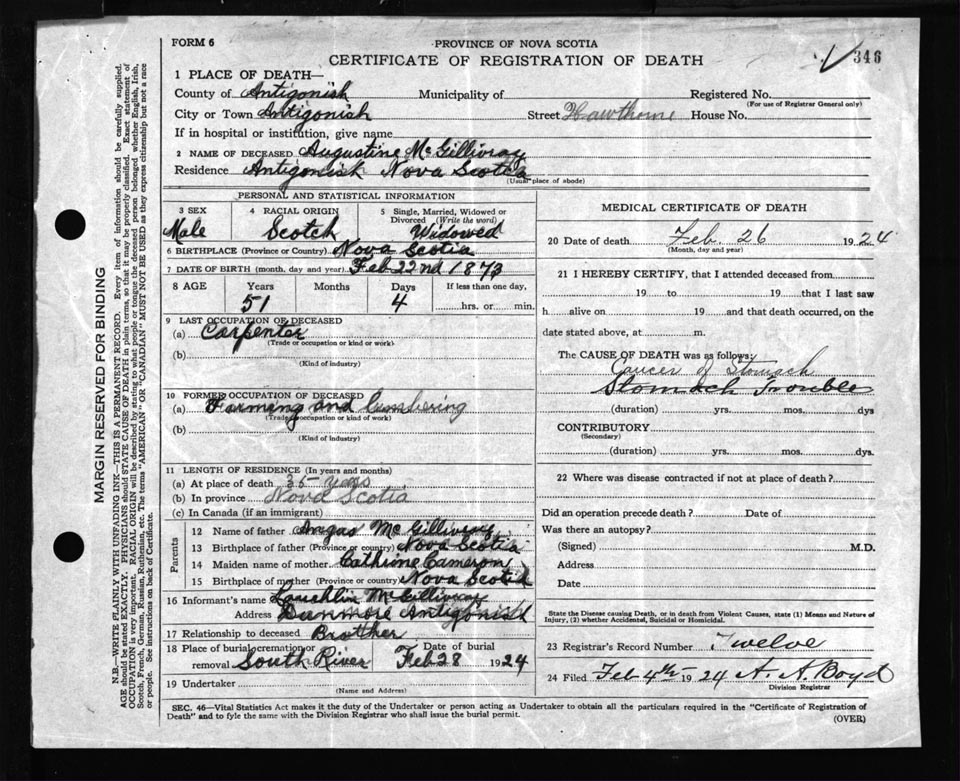 FORM 6
PROVINCE OF NOVA SCOTIA
CERTIFICATE OF REGISTRATION OF DEATH
346
1 PLACE OF DEATH—
County of Antigonish Municipality of Registered No.
(For use of Registrar General only)
City or Town Antigonish Street Hawthorne House No.
If in hospital or institution, give name
2 NAME OF DECEASED Augustine McGillivray
Residence Antigonish Nova Scotia
(Usual place of abode)
PERSONAL AND STATISTICAL INFORMATION
3 SEX Male
4 RACIAL ORIGIN Scotch
5 Single, Married, Widowed or Divorced (Write the word) Widowed
6 BIRTHPLACE (Province or Country) Nova Scotia
7 DATE OF BIRTH (month, day and year) Feb 22nd 1873
8 AGE Years Months Days If less than one day,
51 4 hrs. or min.
9 LAST OCCUPATION OF DECEASED
(a) Carpenter
(Trade or occupation or kind or work)
(b)
(Kind of industry)
10 FORMER OCCUPATION OF DECEASED
(a) Farming and Lumbering
(Trade, occupation or kind of work)
(b)
(Kind of industry)
11 LENGTH OF RESIDENCE (In years and months)
(a) At place of death 35 years
(b) In province Nova Scotia
(c) In Canada (if an immigrant)
Parents
12 Name of father Angas McGillivray
13 Birthplace of father (Province or country) Nova Scotia
14 Maiden name of mother Cathrine Cameron
15 Birthplace of mother (Province or country) Nova Scotia
16 Informant's name Lauchlin McGillivray
Address Dunmore Antigonish
17 Relationship to deceased Brother
18 Place of burial, cremation or removal South River Date of burial Feb 28 1924
19 Undertaker
(Name and Address)
MEDICAL CERTIFICATE OF DEATH
20 Date of death Feb. 26 1924
(Month, day and year)
21 I HEREBY CERTIFY, that I attended deceased from
19 to 19 that I last saw
h alive on 19 and that death occurred, on the
date stated above, at m.
The CAUSE OF DEATH was as follows:
Cancer of Stomach
Stomach Trouble
(duration) yrs. mos. dys
CONTRIBUTORY
(Secondary)
(duration) yrs. mos. dys.
22 Where was disease contracted if not at place of death?
Did an operation precede death? Date of
Was there an autopsy?
(Signed) M.D.
Address
Date
State the Disease causing Death, or in death from Violent Causes, state (1) Means and Nature of
Injury, (2) whether Accidental, Suicidal or Homicidal.
23 Registrar's Record Number Twelve
24 Filed Feb 4th 1924 A. A. Boyd
Division Registrar
SEC. 46—Vital Statistics Act makes it the duty of the Undertaker or person acting as Undertaker to obtain all the particulars required in the "Certificate of Registration of
Death" and to fyle the same with the Division Registrar who shall issue the burial permit.
(OVER)
MARGIN RESERVED FOR BINDING
N.B.—WRITE PLAINLY WITH UNFADING INK—THIS IS A PERMANENT RECORD. Every item of information should be carefully supplied.
AGE should be stated EXACTLY. PHYSICIANS should STATE CAUSE OF DEATH in plain terms, so that it may be properly classified. Exact statement of
OCCUPATION is very important. RACIAL ORIGIN will be described by stating to what people or tongue the deceased person belonged whether English, Irish,
Scotch, French, German, Russian, Ruthenian, etc. The terms "AMERICAN" or "CANADIAN" MUST NOT BE USED as they express citizenship but not a race
or people. See instructions on back of Certificate.